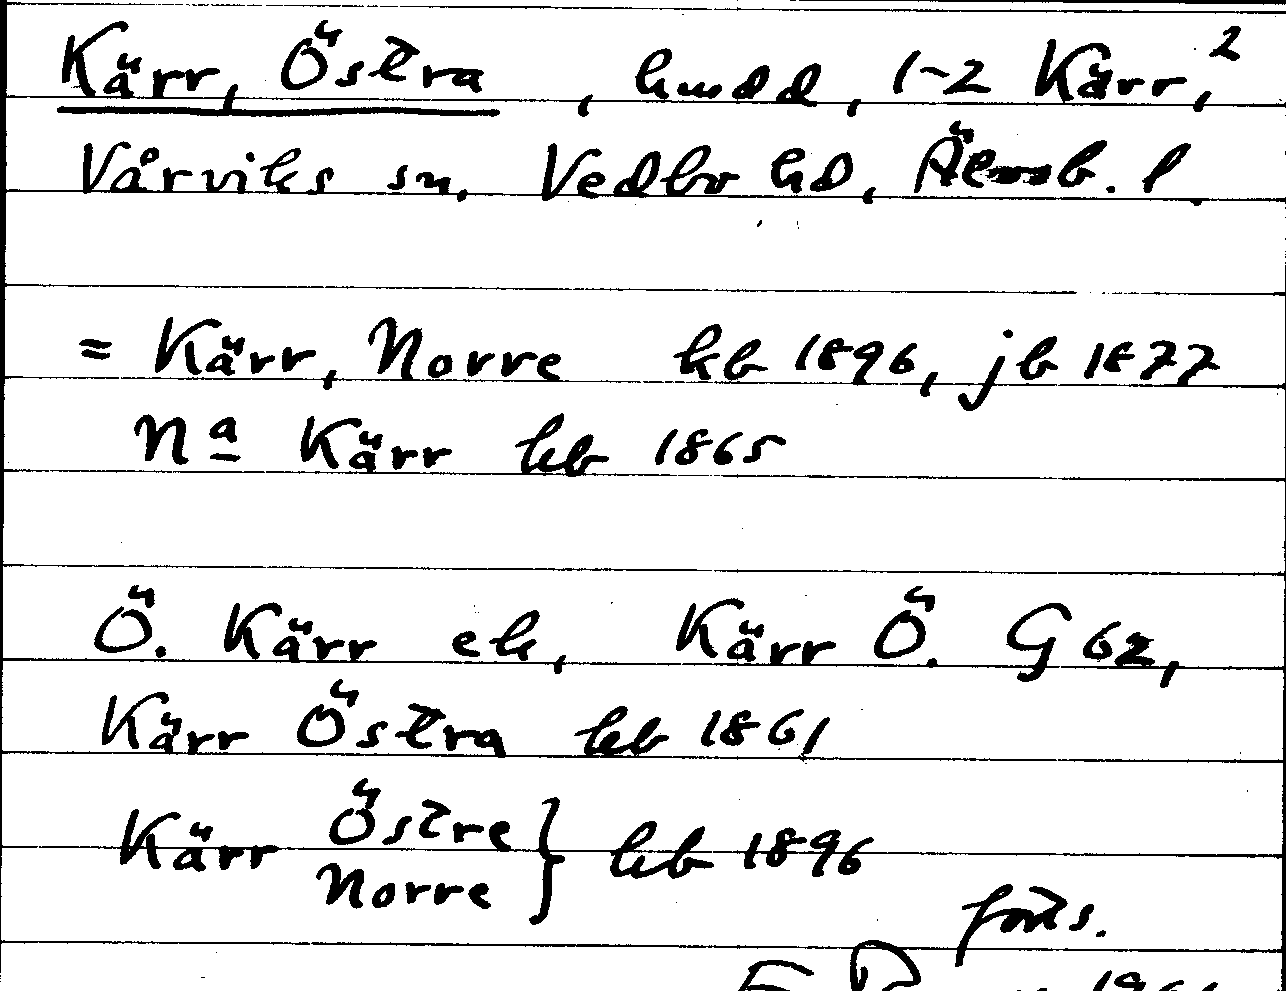 Kärr, Östra, hmdd, 1-2 Kärr,²
Vårviks sn. Vedbo hd, Älvsb. l.
= Kärr, Norre kb 1896, jb 1877
Nª Kärr kb 1865
Ö. Kärr ek, Kärr Ö. G 62,
Kärr Östra kb 1861
Kärr Östre
Norre } kb 1896
forts.